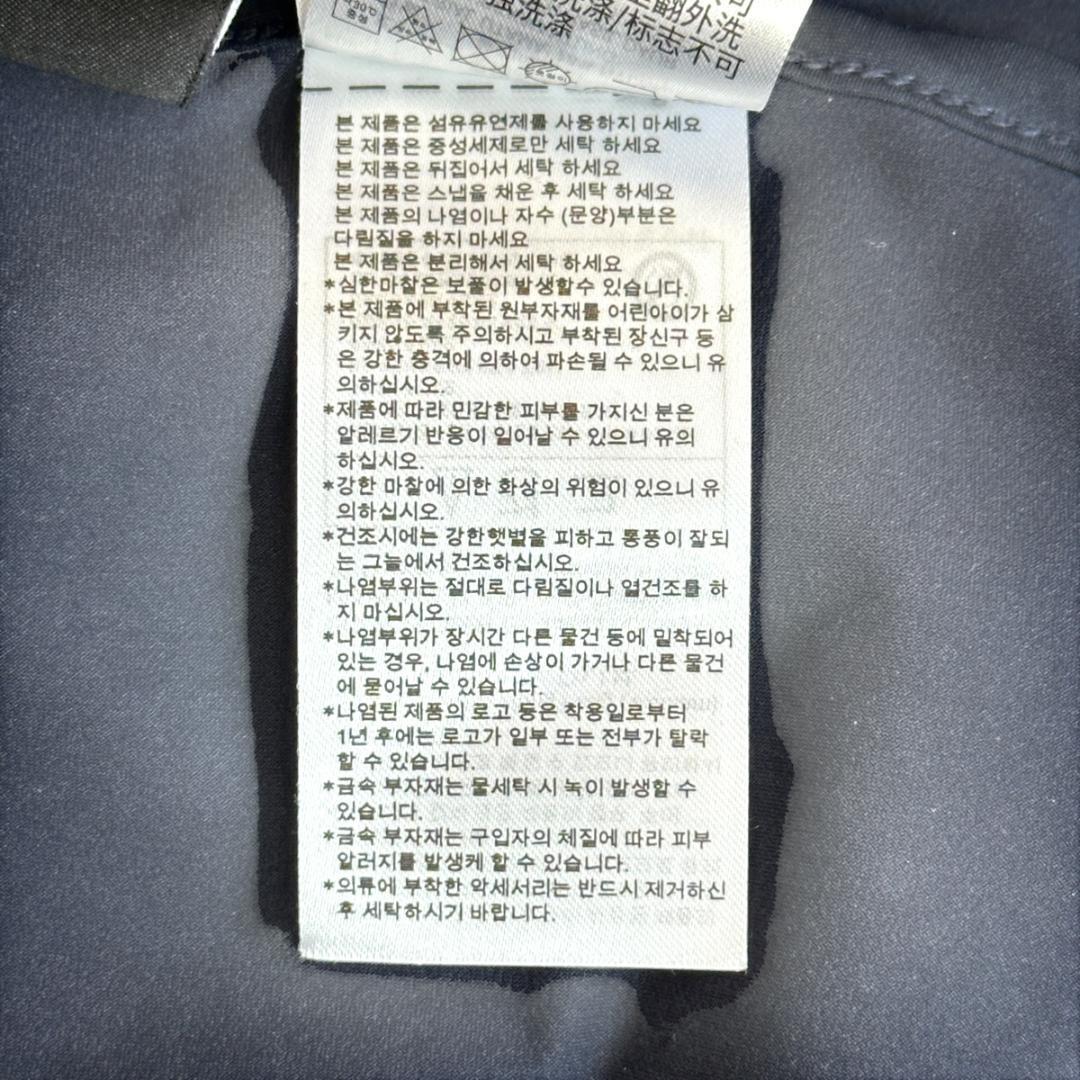 翻外洗
洗涤/标志不可
强洗涤
약30℃
중성
본 제품은 섬유유연제를 사용하지 마세요
본 제품은 중성세제로만 세탁 하세요
본 제품은 뒤집어서 세탁 하세요
본 제품은 스냅을 채운 후 세탁 하세요
본 제품의 나염이나 자수 (문양)부분은
다림질을 하지 마세요
본 제품은 분리해서 세탁 하세요
*심한마찰은 보풀이 발생할수 있습니다.
*본 제품에 부착된 원부자재를 어린아이가 삼
키지 않도록 주의하시고 부착된 장신구 등
은 강한 충격에 의하여 파손될 수 있으니 유
의하십시오.
*제품에 따라 민감한 피부를 가지신 분은
알레르기 반응이 일어날 수 있으니 유의
하십시오.
*강한 마찰에 의한 화상의 위험이 있으니 유
의하십시오.
*건조시에는 강한햇볕을 피하고 통풍이 잘되
는 그늘에서 건조하십시오.
*나염부위는 절대로 다림질이나 열건조를 하
지 마십시오.
*나염부위가 장시간 다른 물건 등에 밀착되어
있는 경우, 나염에 손상이 가거나 다른 물건
에 묻어날 수 있습니다.
*나염된 제품의 로고 등은 착용일로부터
1년 후에는 로고가 일부 또는 전부가 탈락
할 수 있습니다.
*금속 부자재는 물세탁 시 녹이 발생할 수
있습니다.
*금속 부자재는 구입자의 체질에 따라 피부
알러지를 발생케 할 수 있습니다.
*의류에 부착한 악세서리는 반드시 제거하신
후 세탁하시기 바랍니다.